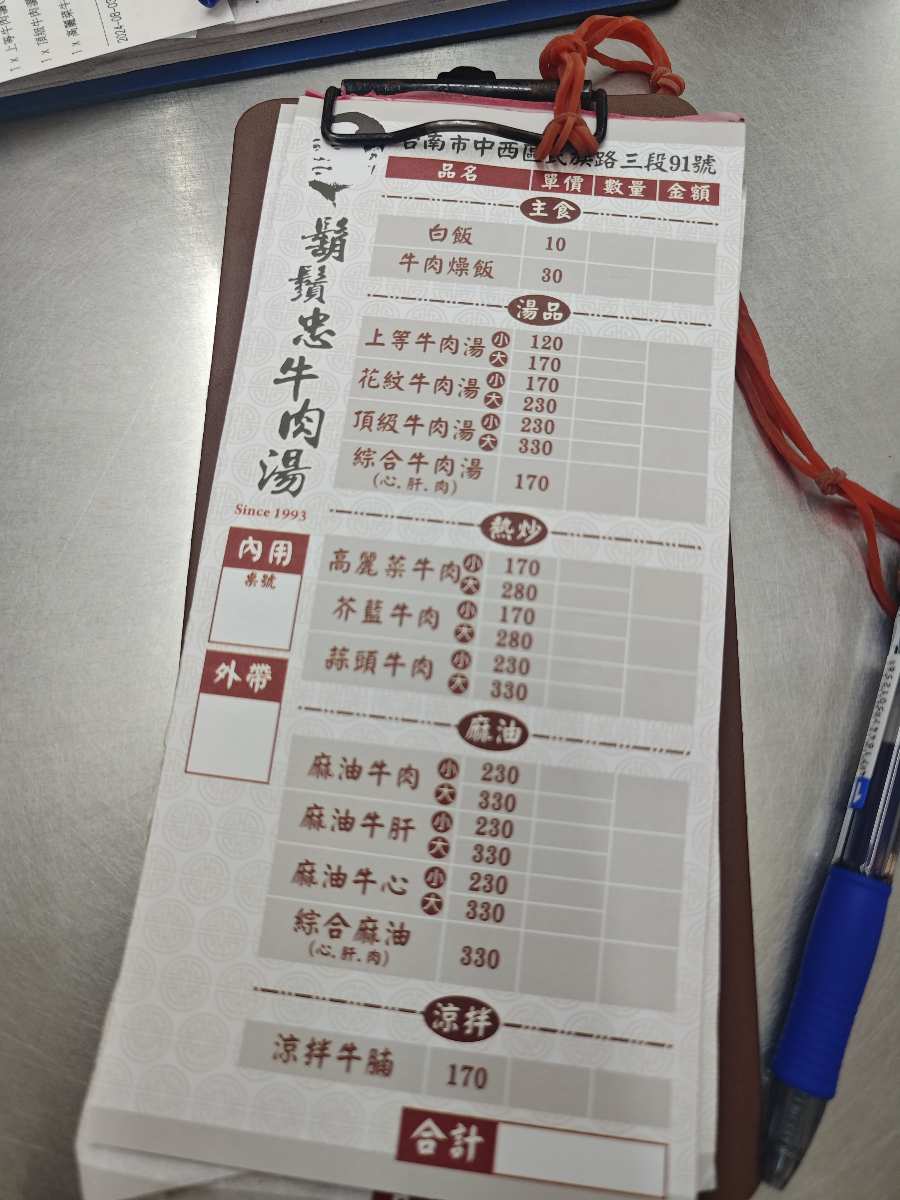 1 x 上等牛肉湯
1 x 頂級牛肉湯
1 x 高麗菜牛
南市中西區民族路三段91號
品名 單價 數量 金額
鬍鬚忠牛肉湯
Since 1993
內用
桌號
外帶
主食
白飯 10
牛肉燥飯 30
湯品
上等牛肉湯 小 120
大 170
花紋牛肉湯 小 170
大 230
頂級牛肉湯 小 230
大 330
綜合牛肉湯 170
(心.肝.肉)
熱炒
高麗菜牛肉 小 170
大 280
芥藍牛肉 小 170
大 280
蒜頭牛肉 小 230
大 330
麻油
麻油牛肉 小 230
大 330
麻油牛肝 小 230
大 330
麻油牛心 小 230
大 330
綜合麻油 330
(心.肝.肉)
涼拌
涼拌牛腩 170
合計